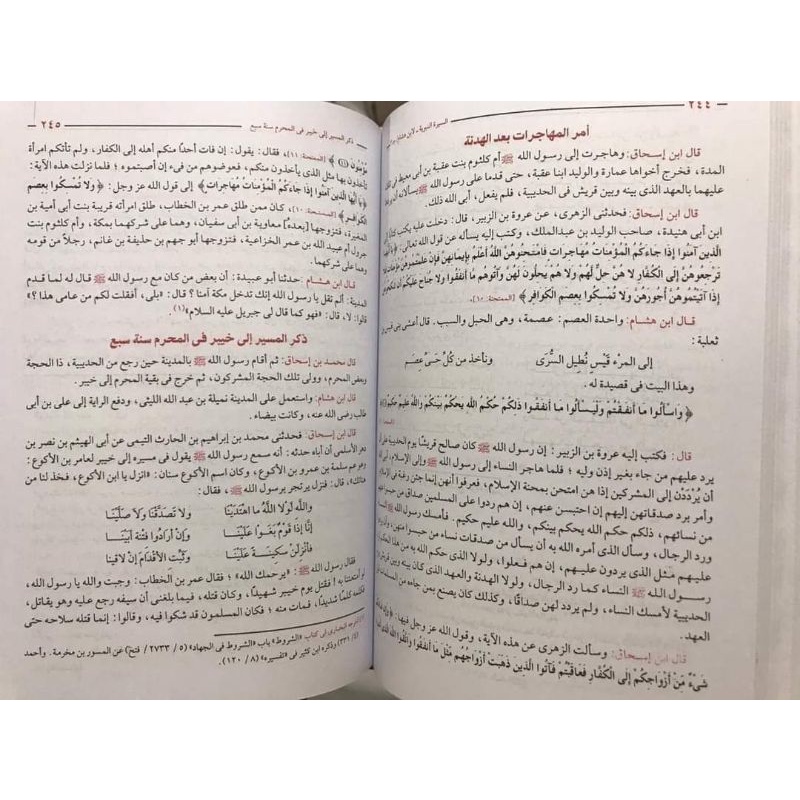 ٢٤٤
السيرة النبوية - لابن هشام
أمر المهاجرات بعد الهدنة
قال ابن إسحاق: وهاجرت إلى رسول الله ﷺ أم كلثوم بنت عقبة بن أبى معيط فى تلك
المدة، فخرج أخواها عمارة والوليد ابنا عقبة، حتى قدما على رسول الله ﷺ يسألانه أن يردها
عليهما بالعهد الذى بينه وبين قريش فى الحديبية، فلم يفعل، أبى الله ذلك.
قال ابن إسحاق: فحدثنى الزهرى، عن عروة بن الزبير، قال: دخلت عليه وهو يكتب كتابا إلى
ابن أبى هنيدة، صاحب الوليد بن عبدالملك، وكتب إليه يسأله عن قول الله تعالى: ﴿يا أيها
الَّذِينَ آمَنُوا إِذَا جَاءَكُمُ الْمُؤْمِنَاتُ مُهَاجِرَاتٍ فَامْتَحِنُوهُنَّ اللَّهُ أَعْلَمُ بِإِيمَانِهِنَّ فَإِنْ عَلِمْتُمُوهُنَّ مُؤْمِنَاتٍ فَلا
تَرْجِعُوهُنَّ إِلَى الْكُفَّارِ لا هُنَّ حِلٌّ لَّهُمْ وَلا هُمْ يَحِلُّونَ لَهُنَّ وَآتُوهُم مَّا أَنفَقُوا وَلا جُنَاحَ عَلَيْكُمْ أَن تَنكِحُوهُنَّ
إِذَا آتَيْتُمُوهُنَّ أُجُورَهُنَّ وَلا تُمْسِكُوا بِعِصَمِ الْكَوَافِرِ﴾ [الممتحنة: ١٠].
قال ابن هشام: واحدة العصم: عصمة، وهى الحبل والسبب. قال أعشى بنى قيس بن
ثعلبة:
إلى المرْء قَيْسٍ نُطِيل السُّرَى ونأخذ من كُلِّ حَىٍّ عِصَم
وهذا البيت فى قصيدة له.
﴿وَاسْأَلُوا مَا أَنفَقْتُمْ وَلْيَسْأَلُوا مَا أَنفَقُوا ذَلِكُمْ حُكْمُ اللَّهِ يَحْكُمُ بَيْنَكُمْ وَاللَّهُ عَلِيمٌ حَكِيمٌ ﴿١٠﴾﴾
قال: فكتب إليه عروة بن الزبير: إن رسول الله ﷺ كان صالح قريشًا يوم الحديبية على أن
يرد عليهم من جاء بغير إذن وليه؛ فلما هاجر النساء إلى رسول الله ﷺ وإلى الإسلام، أبى الله
أن يُرْدَدْنَ إلى المشركين إذا هن امتحن بمحنة الإسلام، فعرفوا أنهن إنما جئن رغبة فى الإسلام
وأمر برد صدقاتهن إليهم إن احتبسن عنهم، إن هم ردوا على المسلمين صداق من حبسوا عنهم
من نسائهم، ذلكم حكم الله يحكم بينكم، والله عليم حكيم. فأمسك رسول الله ﷺ النساء
ورد الرجال، وسأل الذى أمره الله به أن يسأل من صدقات نساء من حبسوا منهن، وأن يردوا
عليهم مثل الذى يردون عليهم، إن هم فعلوا، ولولا الذى حكم الله به من هذا الحكم لرد
رسول الله ﷺ النساء كما رد الرجال، ولولا الهدنة والعهد الذى كان بينه وبين قريش يوم
الحديبية لأمسك النساء، ولم يردد لهن صداقًا، وكذلك كان يصنع بمن جاءه من المسلمات قبل
العهد.
قال ابن إسحاق: وسألت الزهرى عن هذه الآية، وقول الله عز وجل فيها: ﴿وَإِن فَاتَكُمْ
شَىْءٌ مِّنْ أَزْوَاجِكُمْ إِلَى الْكُفَّارِ فَعَاقَبْتُمْ فَآتُوا الَّذِينَ ذَهَبَتْ أَزْوَاجُهُم مِّثْلَ مَا أَنفَقُوا وَاتَّقُوا اللَّهَ الَّذِى أَنتُم بِهِ
ذكر المسير إلى خيبر فى المحرم سنة سبع
٢٤٥
مُؤْمِنُونَ ﴿١١﴾﴾ [الممتحنة: ١١]، فقال: يقول: إن فات أحدًا منكم أهله إلى الكفار، ولم تأتكم امرأة
تأخذون بها مثل الذى يأخذون منكم، فعوضوهم من فىء إن أصبتموه؛ فلما نزلت هذه الآية
﴿يَا أَيُّهَا الَّذِينَ آمَنُوا إِذَا جَاءَكُمُ الْمُؤْمِنَاتُ مُهَاجِرَاتٍ﴾ إلى قول الله عز وجل: ﴿وَلا تُمْسِكُوا بِعِصَمِ
الْكَوَافِرِ﴾ [الممتحنة: ١٠]، كان ممن طلق عمر بن الخطاب، طلق امرأته قريبة بنت أبى أمية بن
المغيرة، فتزوجها [بعده] معاوية بن أبى سفيان، وهما على شركهما بمكة، وأم كلثوم بنت
جرول أم عبيد الله بن عمر الخزاعية، فتزوجها أبو جهم بن حذيفة بن غانم، رجلاً من قومه
وهما على شركهما.
قال ابن هشام: حدثنا أبو عبيدة: أن بعض من كان مع رسول الله ﷺ قال له لما قدم
المدينة: ألم تقل يا رسول الله إنك تدخل مكة آمنا؟ قال: «بلى، أفقلت لكم من عامى هذا؟»
قالوا: لا، قال: «فهو كما قال لى جبريل عليه السلام»(١).
ذكر المسير إلى خيبر فى المحرم سنة سبع
قال محمد بن إسحاق: ثم أقام رسول الله ﷺ بالمدينة حين رجع من الحديبية، ذا الحجة
وبعض المحرم، وولى تلك الحجة المشركون، ثم خرج فى بقية المحرم إلى خيبر.
قال ابن هشام: واستعمل على المدينة نميلة بن عبد الله الليثى، ودفع الراية إلى على بن أبى
طالب رضى الله عنه، وكانت بيضاء.
قال ابن إسحاق: فحدثنى محمد بن إبراهيم بن الحارث التيمى عن أبى الهيثم بن نصر بن
دهر الأسلمى أن أباه حدثه: أنه سمع رسول الله ﷺ يقول فى مسيره إلى خيبر لعامر بن الأكوع؛
وهو عم سلمة بن عمرو بن الأكوع؛ وكان اسم الأكوع سنان: «انزل يا ابن الأكوع، فخذ لنا من
هناتك»: قال: فنزل يرتجز برسول الله ﷺ، فقال:
واللَّه لَولا اللَّهُ مَا اهْتَدَيْنَا ولا تَصَدَّقْنَا وَلا صَلَّيْنَا
إنَّا إذَا قَوْمٌ بَغَوْا عَلَيْنَا وإنْ أرَادُوا فِتْنةً أبَيْنَا
فأنْزِلَنْ سكِينَةً عَلَيْنَا وثَبِّت الأقْدَامَ إن لاقينا
فقال رسول الله ﷺ: «يرحمك الله»؛ فقال عمر بن الخطاب: وجبت والله يا رسول الله،
لو أمتعتنا به! فقتل يوم خيبر شهيدًا، وكان قتله، فيما بلغنى أن سيفه رجع عليه وهو يقاتل،
فكلمه كلمًا شديدًا، فمات منه؛ فكان المسلمون قد شكوا فيه، وقالوا: إنما قتله سلاحه حتى
(١) أخرجه البخارى فى كتاب «الشروط» باب «الشروط فى الجهاد» (٥ / ٢٧٣٣ / فتح) عن المسور بن مخرمة. وأحمد
(٤/ ٣٣١) وذكره ابن كثير فى «تفسيره» (٨ / ١٢٠).